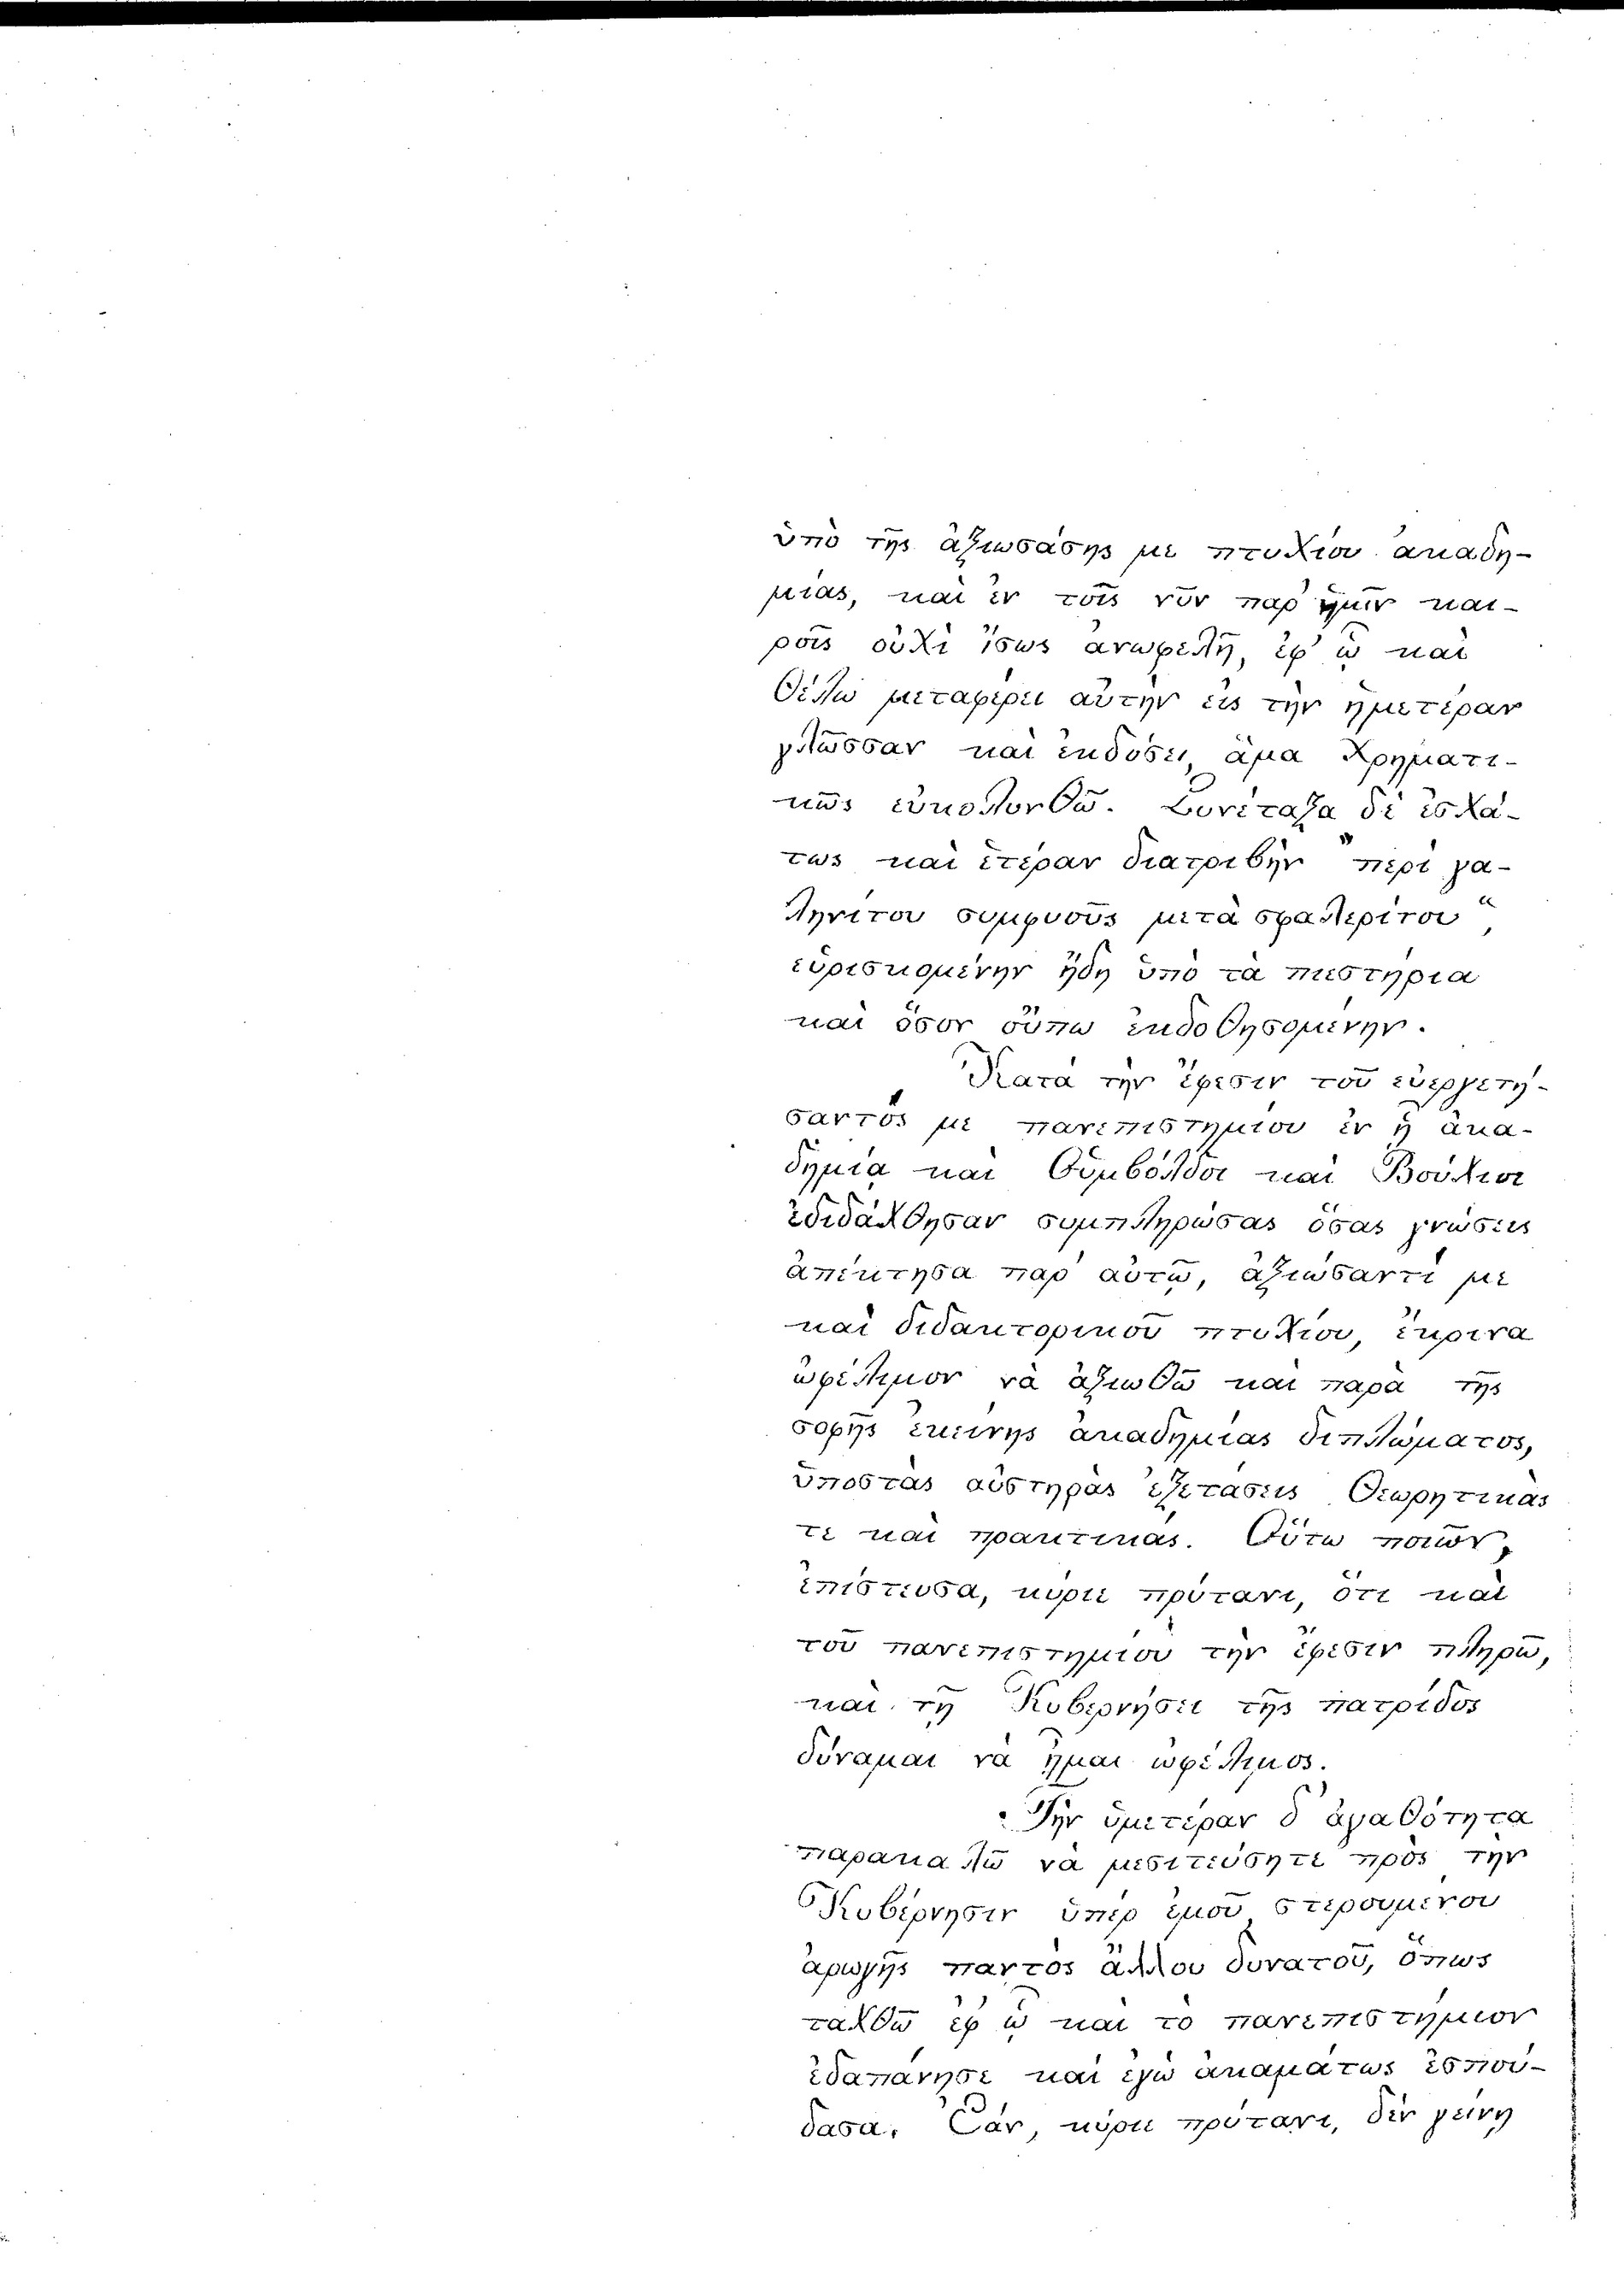 ὑπὸ τῆς ἀξιωσάσης με πτυχίου ἀκαδη-
μίας, καὶ ἐν τοῖς νῦν παρ' ἡμῖν και-
ροῖς οὐχὶ ἴσως ἀνωφελῆ, ἐφ' ᾧ καὶ
θέλω μεταφέρει αὐτὴν εἰς τὴν ἡμετέραν
γλῶσσαν καὶ ἐκδόσει, ἅμα χρηματι-
κῶς εὐκολυνθῶ. Συνέταξα δὲ ἐσχά-
τως καὶ ἑτέραν διατριβὴν "περὶ γα-
ληνίτου συμφυοῦς μετὰ σφαλερίτου",
εὑρισκομένην ἤδη ὑπὸ τὰ πιεστήρια
καὶ ὅσον οὔπω ἐκδοθησομένην.
Κατὰ τὴν ἔφεσιν τοῦ εὐεργετή-
σαντός με πανεπιστημίου ἐν ᾗ ἀκα-
δημίᾳ καὶ Οὑμβόλδοι καὶ Βούχιοι
ἐδιδάχθησαν συμπληρώσας ὅσας γνώσεις
ἀπέκτησα παρ' αὐτῷ, ἀξιώσαντί με
καὶ διδακτορικοῦ πτυχίου, ἔκρινα
ὠφέλιμον νὰ ἀξιωθῶ καὶ παρὰ τῆς
σοφῆς ἐκείνης ἀκαδημίας διπλώματος,
ὑποστὰς αὐστηρὰς ἐξετάσεις θεωρητικάς
τε καὶ πρακτικάς. Οὕτω ποιῶν,
ἐπίστευσα, κύριε πρύτανι, ὅτι καὶ
τοῦ πανεπιστημίου τὴν ἔφεσιν πληρῶ,
καὶ τῇ Κυβερνήσει τῆς πατρίδος
δύναμαι νὰ ἦμαι ὠφέλιμος.
Τὴν ὑμετέραν δ' ἀγαθότητα
παρακαλῶ νὰ μεσιτεύσητε πρὸς τὴν
Κυβέρνησιν ὑπὲρ ἐμοῦ στερουμένου
ἀρωγῆς παντὸς ἄλλου δυνατοῦ, ὅπως
ταχθῶ ἐφ' ᾧ καὶ τὸ πανεπιστήμιον
ἐδαπάνησε καὶ ἐγὼ ἀκαμάτως ἐσπού-
δασα. Ἐάν, κύριε πρύτανι, δὲν γείνῃ